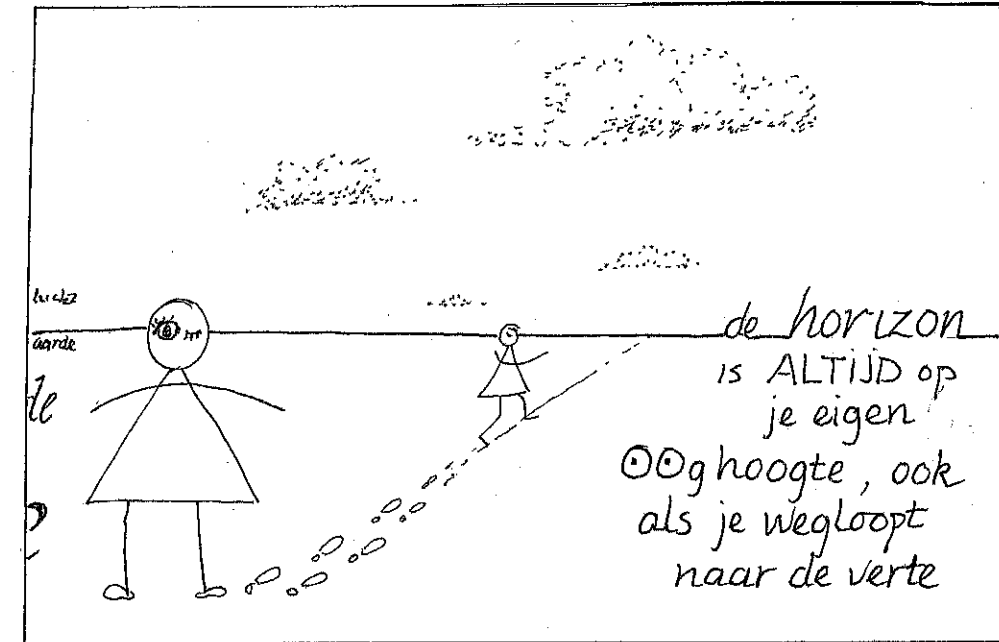 lucht
aarde
de horizon
is ALTIJD op
je eigen
OOghoogte, ook
als je wegloopt
naar de verte